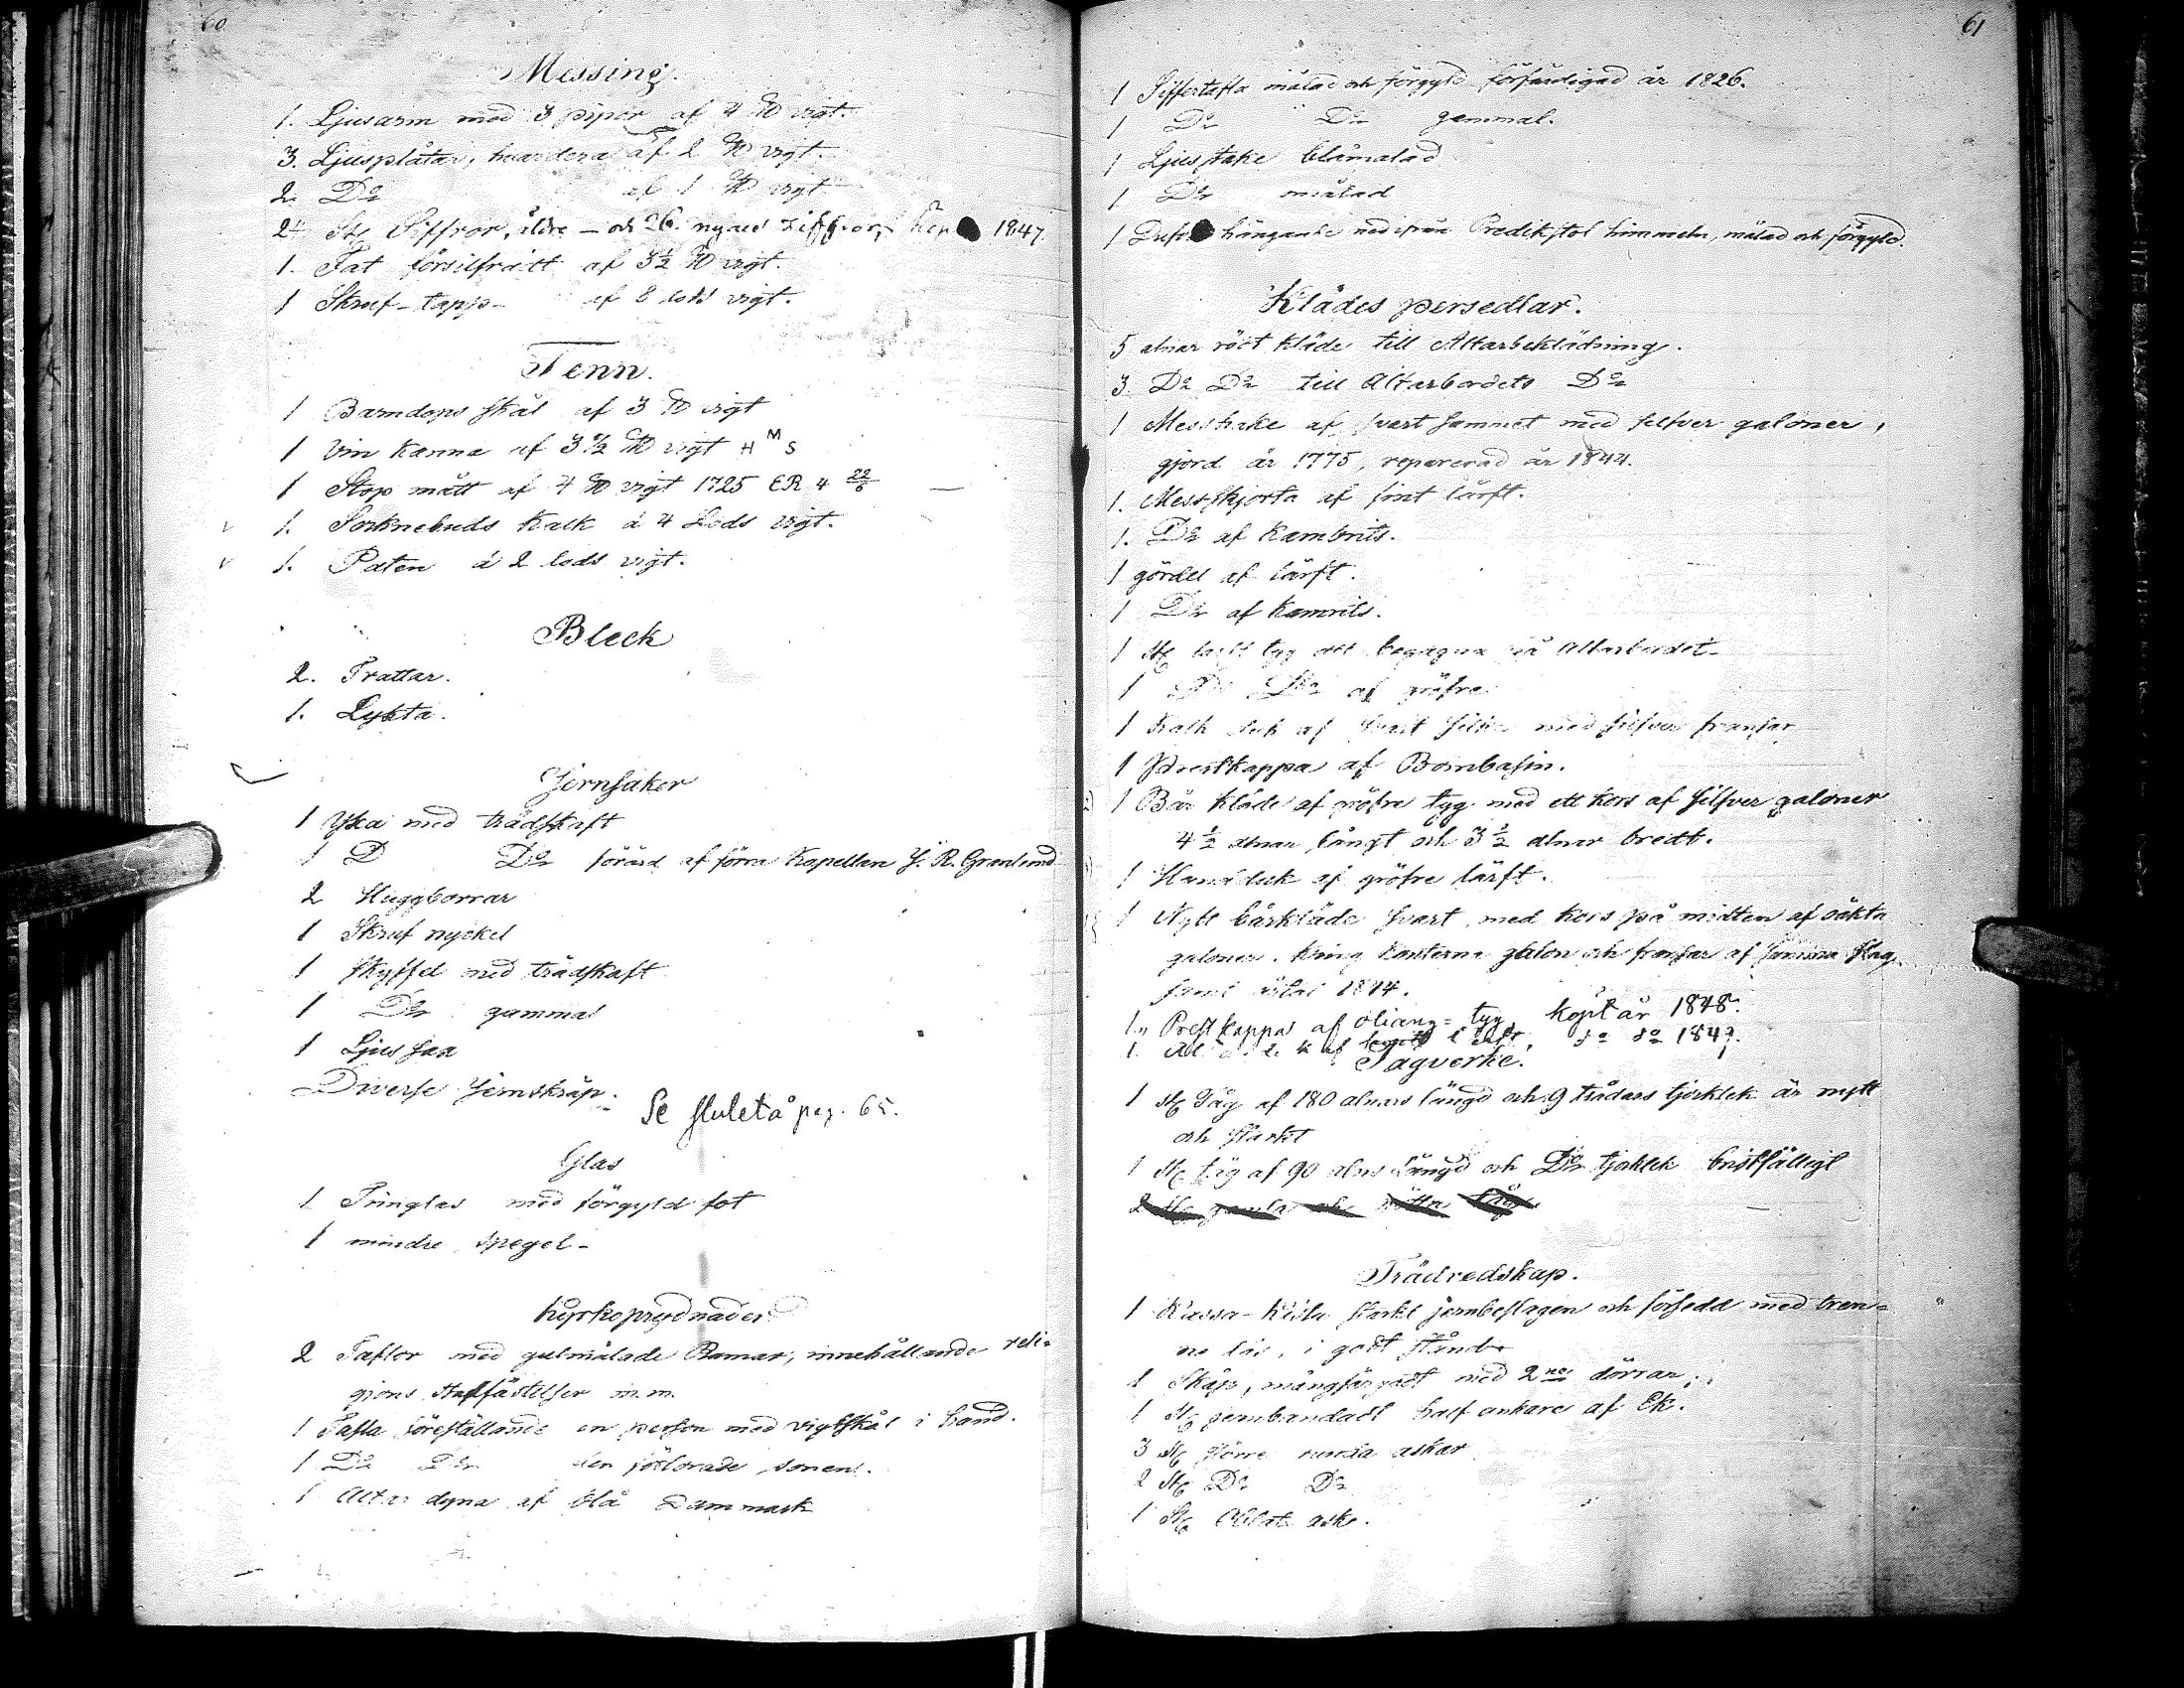 60
Messing.
1. Ljusarm med 3 pipor af 4 ℔ vigt.
3. Ljusplåtar, hvardera af 2 ℔ vigt.
2. Do af 1 ℔ vigt
24 St Siffror, äldre – och 26 nyare Ziffror, 1847.
1. Fat försilfradt af 3½ ℔ vigt.
1 Skruf-tapp- af 8 lods vigt.
Tenn.
1 Barndops skål af 3 ℔ vigt
1 Vin kanna af 3½ ℔ vigt H M S
1 Stop mått af 4 ℔ vigt 1725 ER 4 22/6
1. Socknebuds Kalk á 4 Lods vigt.
1. Paten á 2 lods vigt.
Bleck
2. Trattar.
1. Lykta.
Jernsaker
1 Yxa med trädskaft
1 D Do förärd af förra Kapellan J. R. Granlund
2 Huggborrar
1 Skruf nyckel
1 skyffel med trädskaft
1 Do gammal
1 Ljus sax
Diverse Jernskräp.
Se slutet å pag. 65.
Glas
1 Timglas med förgyld fot
1 mindre spegel-
Kyrkoprydnader
2 Taflor med gulmålade Ramar, innehållande reli-
gions stadfästelser m.m.
1 Tafla föreställande en person med vigtskål i hand.
1 Do Do den förlorade sonen.
1 Altar dyna af blå Dammask
61
1 Siffertafla målad och förgyld förfärdigad år 1826.
1 Do Do gammal.
1 Ljusstake blåmalad
1 Do målad
1 hängande nedifrån Predikstol himmeln, målad och förgyld.
Klädes persedlar.
5 alnar rödt kläde till Altarbeklädning.
3 Do Do till Altarbordets Do
1 Messhake af svart sammet med silfver galoner,
gjord år 1775, reparerad år 1844.
1. Messskjorta af fint lärft.
1. Do af Kambrits.
1 gördel af lärft.
1 Do af Kamrits.
1 St lärft tyg att begagna på Altarbordet-
1 Do Do af gröfre
1 Kalk duk af svart silke med silfver fransar
1 Prestkappa af Bombasin.
1 Bår kläde af gröfre tyg med ett kors af silfver galoner
4½ alnar långt och 3½ alnar bredt.
1 Handduk af gröfre lärft.
1 Nytt bårkläde svart, med kors på midten af oäkta
galoner. Kring kanterna galon och fransar af samma slag,
samt årtal 1844.
1„ Prestkappa af tyg, köpt år 1848.
1. af lärft, do do 1849.
Tågverke.
1 St Tåg af 180 alnars längd och 9 trådars tjocklek är nytt
och starkt
1 St tåg af 90 alns Längd och Do tjocklek bristfälligt
2 St gamla tåg
Trädredskap.
1 Kassa-Kista starkt jernbeslagen och försedd med tren-
ne lås, i godt stånd
1 Skåp, mångfärgadt med 2ne dörrar,
1 St jernbandadt half ankare af Ek.
3 St större runda askar
2 St Do Do
1 St Oblat aske.